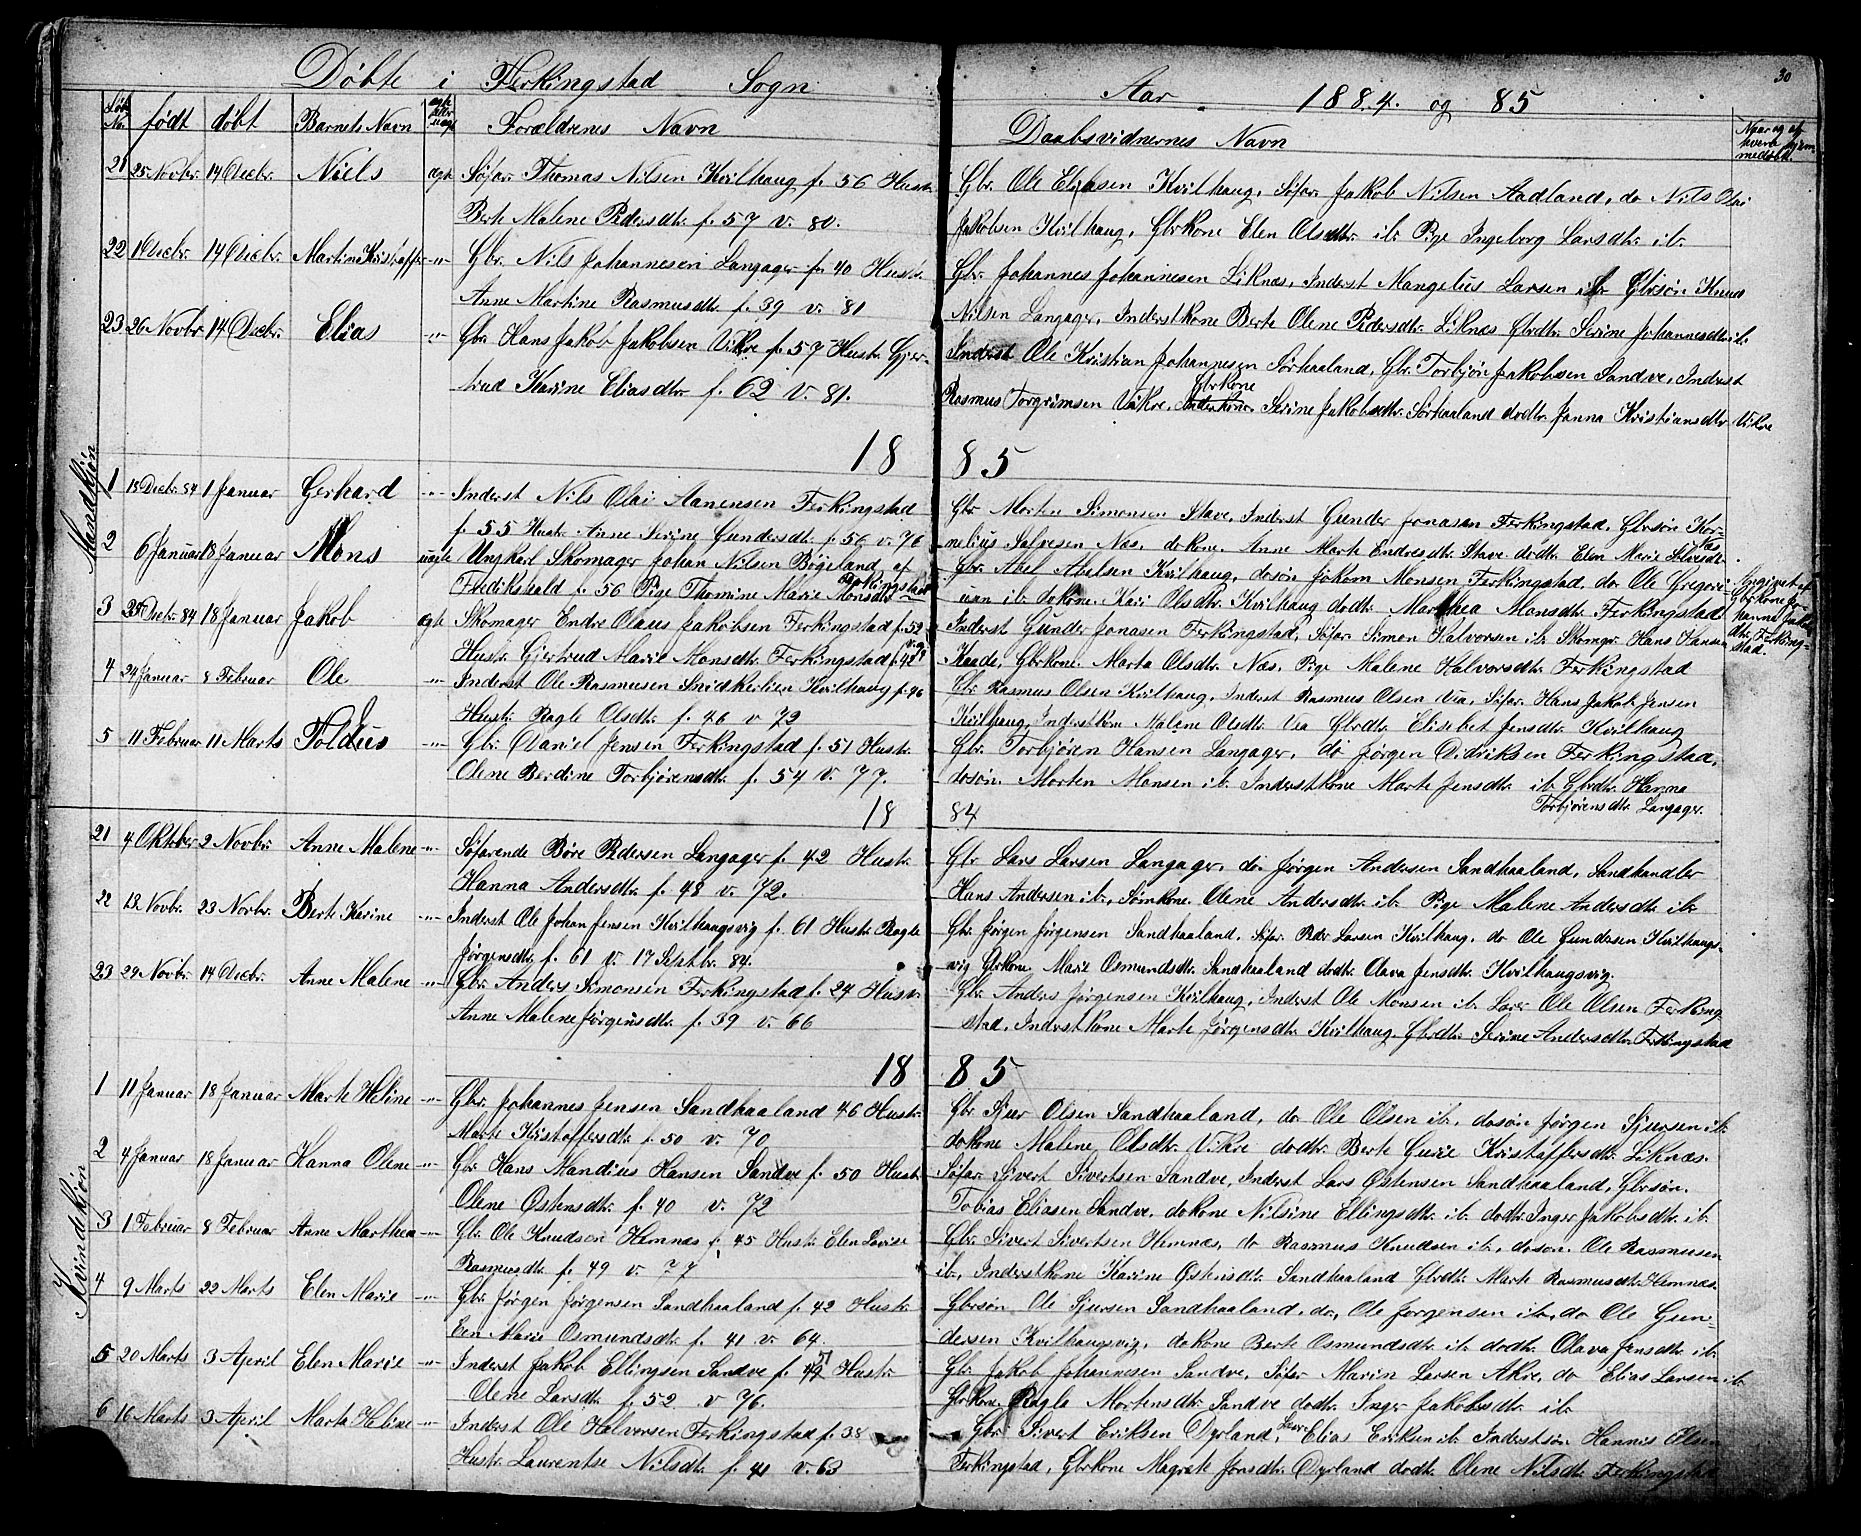 30
Døbte i Ferkingstad Sogn Aar 1884. og 85
Løb No. født døbt Barnets Navn ægte eller uægte Forældrenes Navn Daabsvidnernes Navn Naar og af hvem hjemmedøbt
Mandkjøn
21 25 Novbr. 14 Decbr. Niels ægte Søfar. Thomas Nilsen Kvilhaug f. 56 Hustr.
Berte Malene Pedersdtr. f. 57 v. 80.
Gbr. Ole Eliasen Kvilhaug, Søfar. Jakob Nilsen Aadland, do Nils Olai
Jakobsen Kvilhaug, Gbrkone Elen Olsdtr. ib. Pige Ingeborg Larsdtr. ib.
22 1 Decbr. 14 Decbr. Martin Kristoffer -"- Gbr. Nils Johannesen Langager f. 40 Hustr.
Anne Martine Rasmusdtr. f. 39 v. 81
Gbr. Johannes Johannesen Liknes, Inderst Mangelius Larsen ib. Gbrsøn Knud
Nilsen Langager, Inderstkone Berte Olene Pedersdtr. Liknes Gbrdtr. Serine Johannesdtr. ib.
23 26 Novbr. 14 Decbr. Elias -"- Gbr. Hans Jakob Jakobsen Vikre f. 57 Hustr. Gjer-
trud Karine Eliasdtr. f. 62 v. 81.
Inderst Ole Kristian Johannesen Sørhaaland, Gbr. Torbjørn Jakobsen Sandve, Inderst
Gbrkone
Rasmus Torgrimsen Vikre, Inderstkone Serine Jakobsdtr. Sørhaaland dodtr. Janna Kristiansdtr. Vikre
1885
1 15 Decbr. 84 1 Januar Gerhard -"- Inderst Nils Olai Aanensen Ferkingstad
f. 55 Hustr. Anne Serine Gundersdtr. f. 56 v. 76
Gbr. Morten Simonsen Stave, Inderst Gunder Jonasen Ferkingstad, Gbrsøn Kor-
nelius Salvesen Nes, dokone. Anne Marte Endresdtr. Stave dodtr. Elen Marie Salvesdtr. Nes
2 6 Januar 18 Januar Mons uægte Ungkarl Skomager Johan Nilsen Bøgeland af
Fredikshald f. 56 Pige Thomine Marie Monsdtr. Ferkingstad
Gbr. Abel Abelsen Kvilhaug, dosøn Jokum Monsen Ferkingstad, do Ole Gregori-
usen ib. dokone. Kari Olsdtr. Kvilhaug dodtr. Marthea Monsdtr. Ferkingstad
Angivet af Gbrkone Johanne Jakobsdtr. Ferkingstad.
3 25 Decbr. 84 18 Januar Jakob ægte Skomager Endre Olaus Jakobsen Ferkingstad f. 52
Hustr. Gjertrud Marie Monsdtr. Ferkingstad f. 48
Inderst Gunder Jonasen Ferkingstad, Søfar. Simon Halvorsen ib. Skomgr. Hans Hansen
Kaade, Gbrkone. Marta Olsdtr. Nes, Pige Malene Halvorsdtr. Ferkingstad
4 24 Januar 8 Februar Ole -"- Inderst Ole Rasmusen Snidkerlien Kvilhaug f. 46
Hustr. Ragle Olsdtr. f. 46 v. 72
Gbr. Rasmus Olsen Kvilhaug, Inderst Rasmus Olsen Via, Søfar. Hans Jakob Jensen
Kvilhaug, Inderstkone. Malene Olsdtr. Via Gbrdtr. Elisebet Jensdtr. Kvilhaug
5 11 Februar 11 Marts Poldus -"- Gbr. Daniel Jensen Ferkingstad f. 51 Hustr.
Olene Berdine Torbjørensdtr. f. 54 v. 77.
Gbr. Torbjøren Hansen Langager, do Jørgen Didriksen Ferkingstad,
dosøn. Morten Monsen ib. Inderstkone Marte Jensdtr. ib. Gbrdtr. Hanna
Torbjørensdtr. Langager.
1884
Kvindekjøn
21 4 Oktober 2 Novbr. Anne Malene -"- Søfarende Børe Pedersen Langager f. 42 Hustr.
Hanna Andersdtr. f. 48 v. 72.
Gbr. Lars Larsen Langager, do. Jørgen Andersen Sandhaaland, Sandhandler
Hans Andersen ib., Sømkone. Olene Andersdtr. ib. Pige Malene Andersdtr. ib.
22 12 Novbr. 23 Novbr. Berte Karine -"- Inderst Ole Johan Jensen Kvilhaugsvig f. 61 Hustr. Ragle
Jørgensdtr. f. 61 v. 17 Septbr. 84.
Gbr. Jørgen Jørgensen Sandhaaland, Søfar. Peder Larsen Kvilhaug, do Ole Gundersen Kvilhaugs-
vig Gbrkone. Marie Osmundsdtr. Sandhaaland dodtr. Olava Jensdtr. Kvilhaugsvig.
23 29 Novbr. 14 Decbr. Anne Malene -"- Gbr. Anders Simonsen Ferkingstad f. 27 Hustr.
Anne Malene Jørgensdtr. f. 39 v. 66
Gbr. Anders Jørgensen Kvilhaug, Inderst Ole Monsen ib. Lærer Ole Olsen Ferking
stad, Inderstkone Marte Jørgensdtr. Kvilhaug Gbrdtr. Serine Andersdtr. Ferkingstad
1885
1 11 Januar 18 Januar Marte Heline -"- Gbr. Johannes Jensen Sandhaaland 46 Hustr.
Marte Kristoffersdtr. f. 50 v. 70
Gbr. Sjur Olsen Sandhaaland, do Ole Olsen ib., dosøn Jørgen Sjursen ib.
dokone Malene Olsdtr. Vikre dodtr. Berte Gurie Kristoffersdtr. Liknes.
2 4 Januar 18 Januar Hanna Olene -"- Gbr. Hans Mandius Hansen Sandve f. 50 Hustr.
Olene Østensdtr. f. 40 v. 72
Søfar. Sivert Sivertsen Sandve, Inderst Lars Østensen Sandhaaland, Gbrsøn.
Tobias Eliasen Sandve. dokone Nilsine Ellingsdtr. ib. dodtr. Inger Jakobsdtr. ib.
3 1 Februar 8 Februar Anne Marthea -"- Gbr. Ole Knudsen Hemnes f. 45 Hustr. Elen Lovise
Rasmusdtr. f. 49 v. 77
Gbr. Sivert Sivertsen Hemnes, do Rasmus Knudsen ib., dosøn. Ole Rasmusen
ib., Inderstkone Karine Østensdtr. Sandhaaland Gbrdtr. Marte Rasmusdtr. Hemnes.
4 9 Marts 22 Marts Elen Marie -"- Gbr. Jørgen Jørgensen Sandhaaland f. 42 Hustr.
Elen Marie Osmundsdtr. f. 41 v. 64.
Gbrsøn Ole Sjursen Sandhaaland, do, Ole Jørgensen ib., do Ole Gun-
dersen Kvilhaugsvig, dokone Berte Osmundsdtr. ib. dodtr. Olava Jensdtr. ib.
5 20 Marts 3 April Elen Marie -"- Inderst Jakob Ellingsen Sandve f. 49 Hustr.
Olene Larsdtr. f. 52 v 76.
Gbr. Jakob Johannesen Sandve, Søfar Marin Larsen Akre, do Elias Larsen ib.
Gbrkone. Ragla Mortensdtr. Sandve dodtr. Inger Jakobsdtr. ib.
6 16 Marts 3 April Marta Heline -"- Inderst Ole Halvorsen Ferkingstad f. 38
Hustr. Laurentse Nilsdtr. f. 41 v. 63
Gbr. Sivert Eriksen Dyrland, Elias Eriksen ib. Inderstsøn Hannis Olsen
Ferkingstad, Gbrkone Magrete Jonsdtr. Dyrland dodtr. Olene Nilsdtr. Ferkingstad